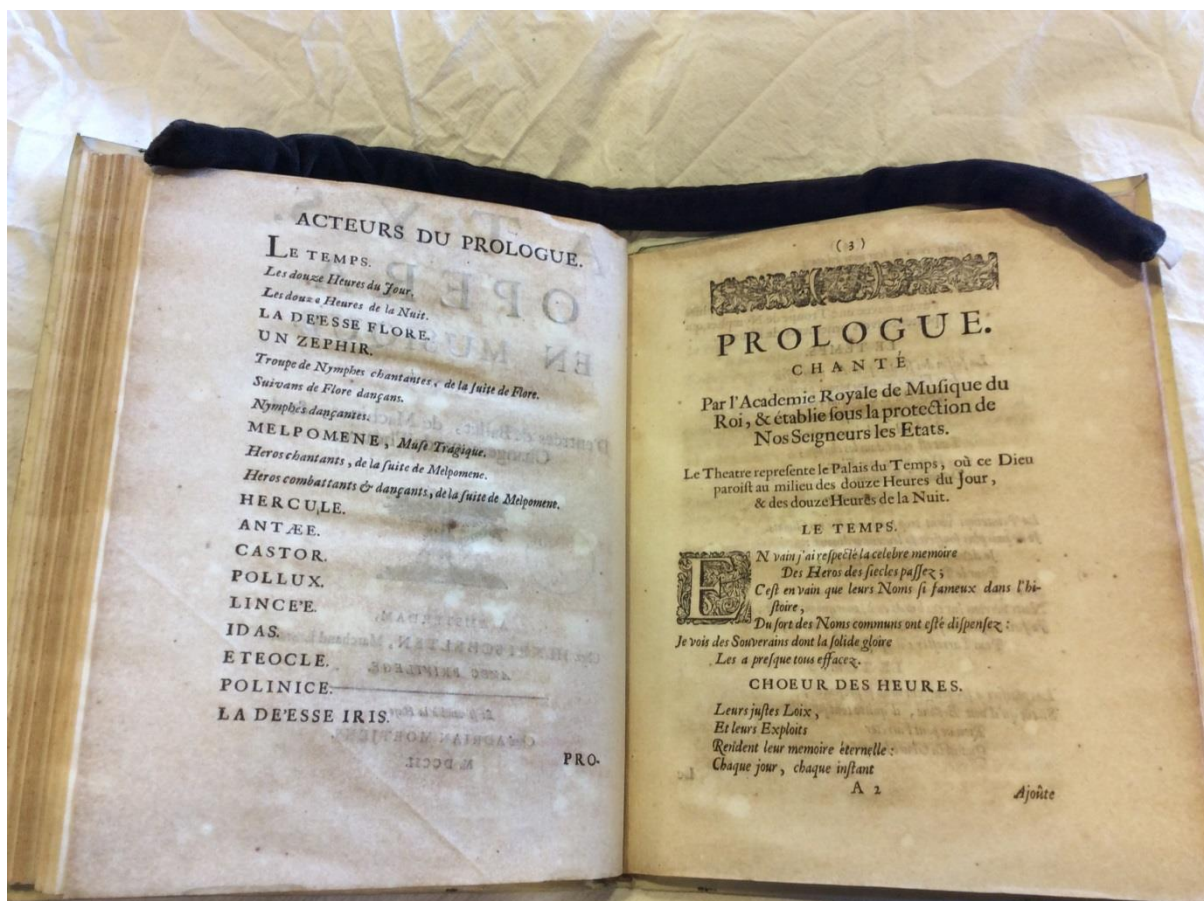 ACTEURS DU PROLOGUE.
LE TEMPS.
Les douze Heures du Jour.
Les douze Heures de la Nuit.
LA DE'ESSE FLORE.
UN ZEPHIR.
Troupe de Nymphes chantantes, de la ſuite de Flore.
Suivans de Flore dançans.
Nymphes dançantes.
MELPOMENE, Muſe Tragique.
Heros chantants, de la ſuite de Melpomene.
Heros combattants & dançants, de la ſuite de Melpomene.
HERCULE.
ANTÆE.
CASTOR.
POLLUX.
LINCE'E.
IDAS.
ETEOCLE.
POLINICE.
LA DE'ESSE IRIS.
PRO-
(3)
PROLOGUE.
CHANTÉ
Par l'Academie Royale de Muſique du
Roi, & établie ſous la protection de
Nos Seigneurs les Etats.
Le Theatre repreſente le Palais du Temps, où ce Dieu
paroiſt au milieu des douze Heures du Jour,
& des douze Heures de la Nuit.
LE TEMPS.
EN vain j'ai reſpecté la celebre memoire
Des Heros des ſiecles paſſez;
C'eſt en vain que leurs Noms ſi fameux dans l'hi-
ſtoire,
Du ſort des Noms communs ont eſté diſpenſez:
Je vois des Souverains dont la ſolide gloire
Les a preſque tous effacez.
CHOEUR DES HEURES.
Leurs juſtes Loix,
Et leurs Exploits
Rendent leur memoire éternelle:
Chaque jour, chaque inſtant
A 2
Ajoûte